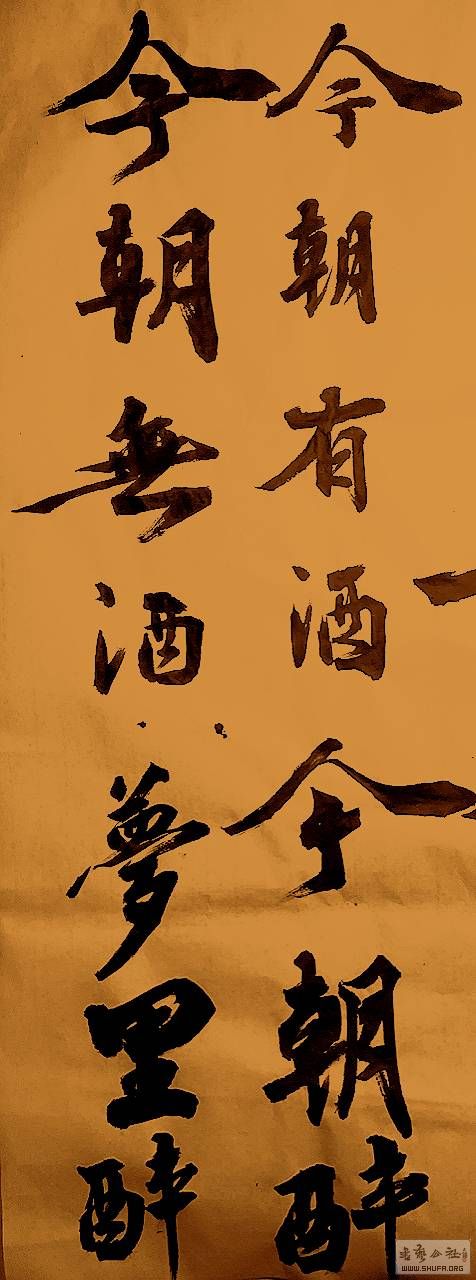 今朝有酒今朝醉
今朝無酒夢里醉
WWW.SHUFA.ORG